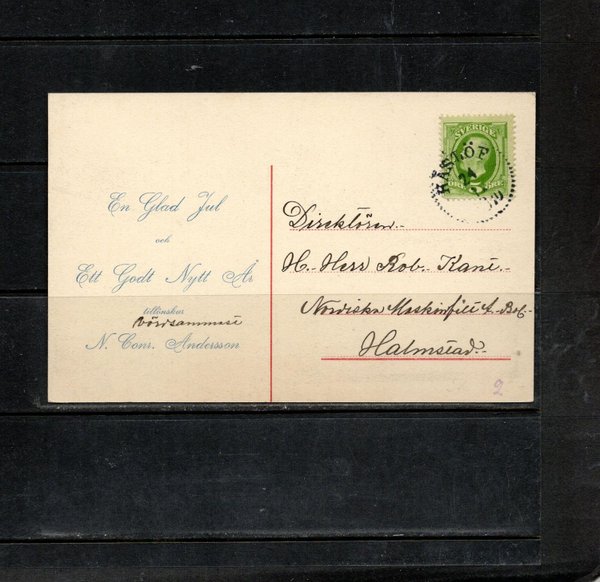 En Glad Jul
och
Ett Godt Nytt År
tillönskar
vördsammast
N. Conr. Andersson
SVERIGE
ÖRE 5 ÖRE
24
10
Direktören
H. Herr Rob. Kane.
Nordiska Maskinfili A. Bol.
Halmstad.
2